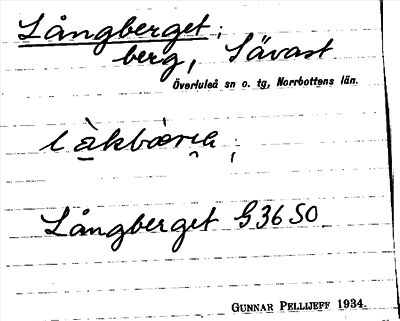 Långberget;
berg, Sävast
Överluleå sn o. tg, Norrbottens län.
Långberget G36 SO
GUNNAR PELLIJEFF 1934.